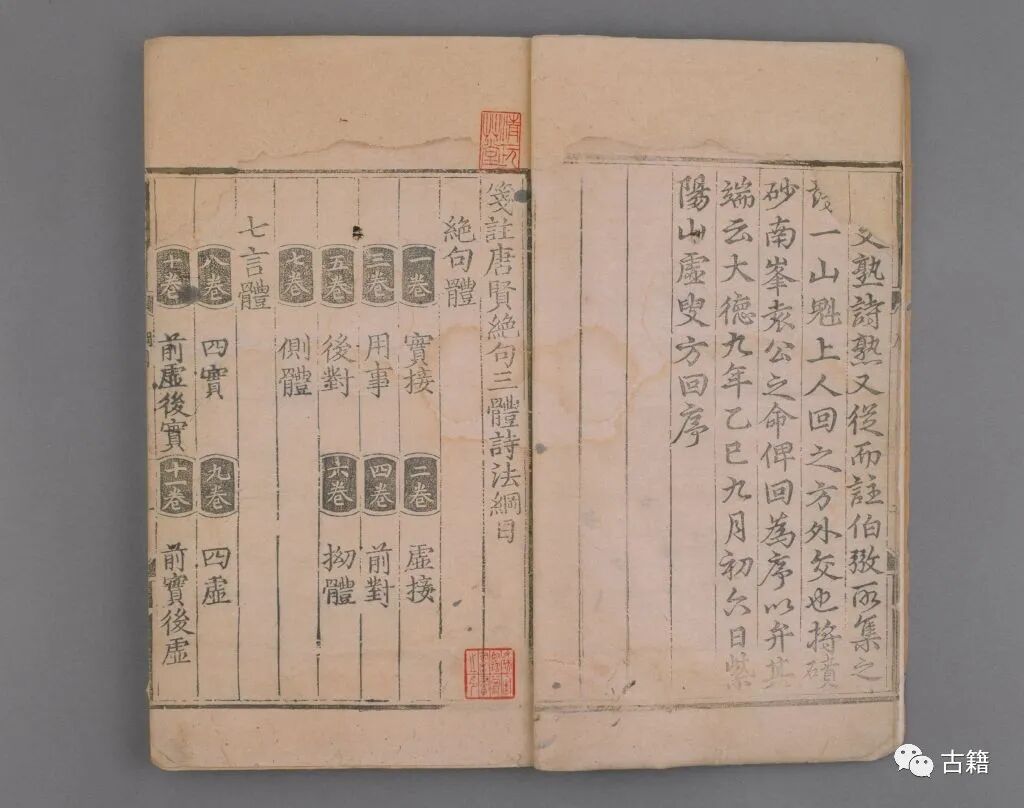 文熟詩熟又從而註伯弜所集之
一山魁上人回之方外交也將磧
砂南峯袁公之命俾回為序以弁其
端云大德九年乙巳九月初六日紫
陽山虛叟方回序
箋註唐賢絶句三體詩法綱目
絶句體
一卷 實接 二卷 虛接
三卷 用事 四卷 前對
五卷 後對 六卷 拗體
七卷 側體
七言體
八卷 四實 九卷 四虛
十卷 前虛後實 十一卷 前實後虛
古籍